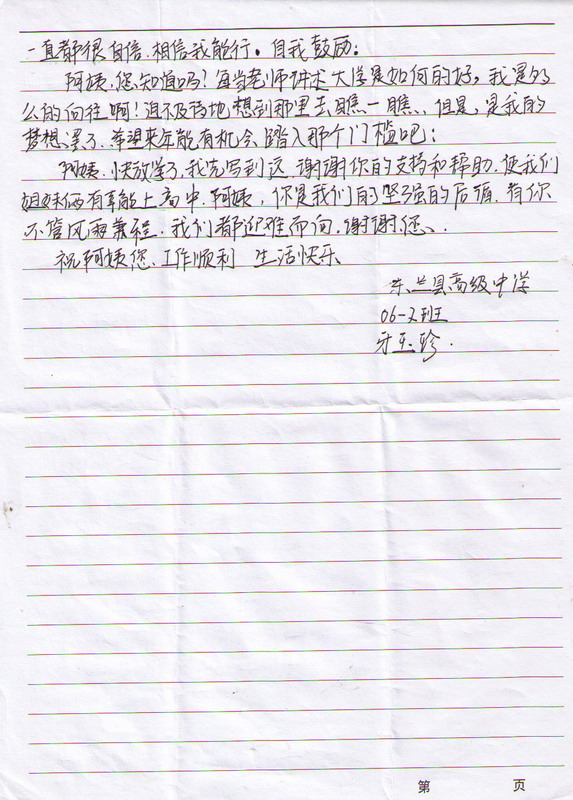 一直都很自信.相信我能行。自我鼓励.
阿姨.您知道吗?每当老师讲述大学是如何的好,我是多
么的向往啊!迫不及待地想到那里去瞧一瞧.但是.是我的
梦想.罢了.希望来年能有机会踏入那个门槛吧.
阿姨.快放学了.我先写到这.谢谢你的支持和帮助.使我们
姐妹俩有幸能上高中.阿姨,你是我们的坚强的后盾.有你
不管风雨兼程.我们都迎难而向.谢谢您、
祝阿姨您.工作顺利 生活快乐
东兰县高级中学
06-2班
牙玉珍.
第 页